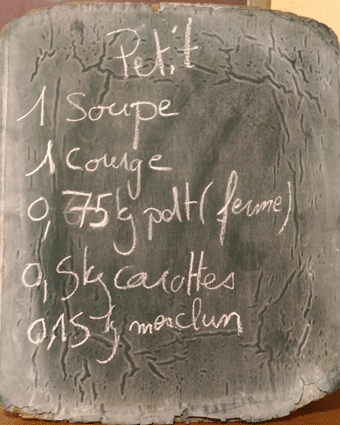 Petit
1 Soupe
1 Courge
0,75kg pdt (ferme)
0,5kg carottes
0,15kg mesclun